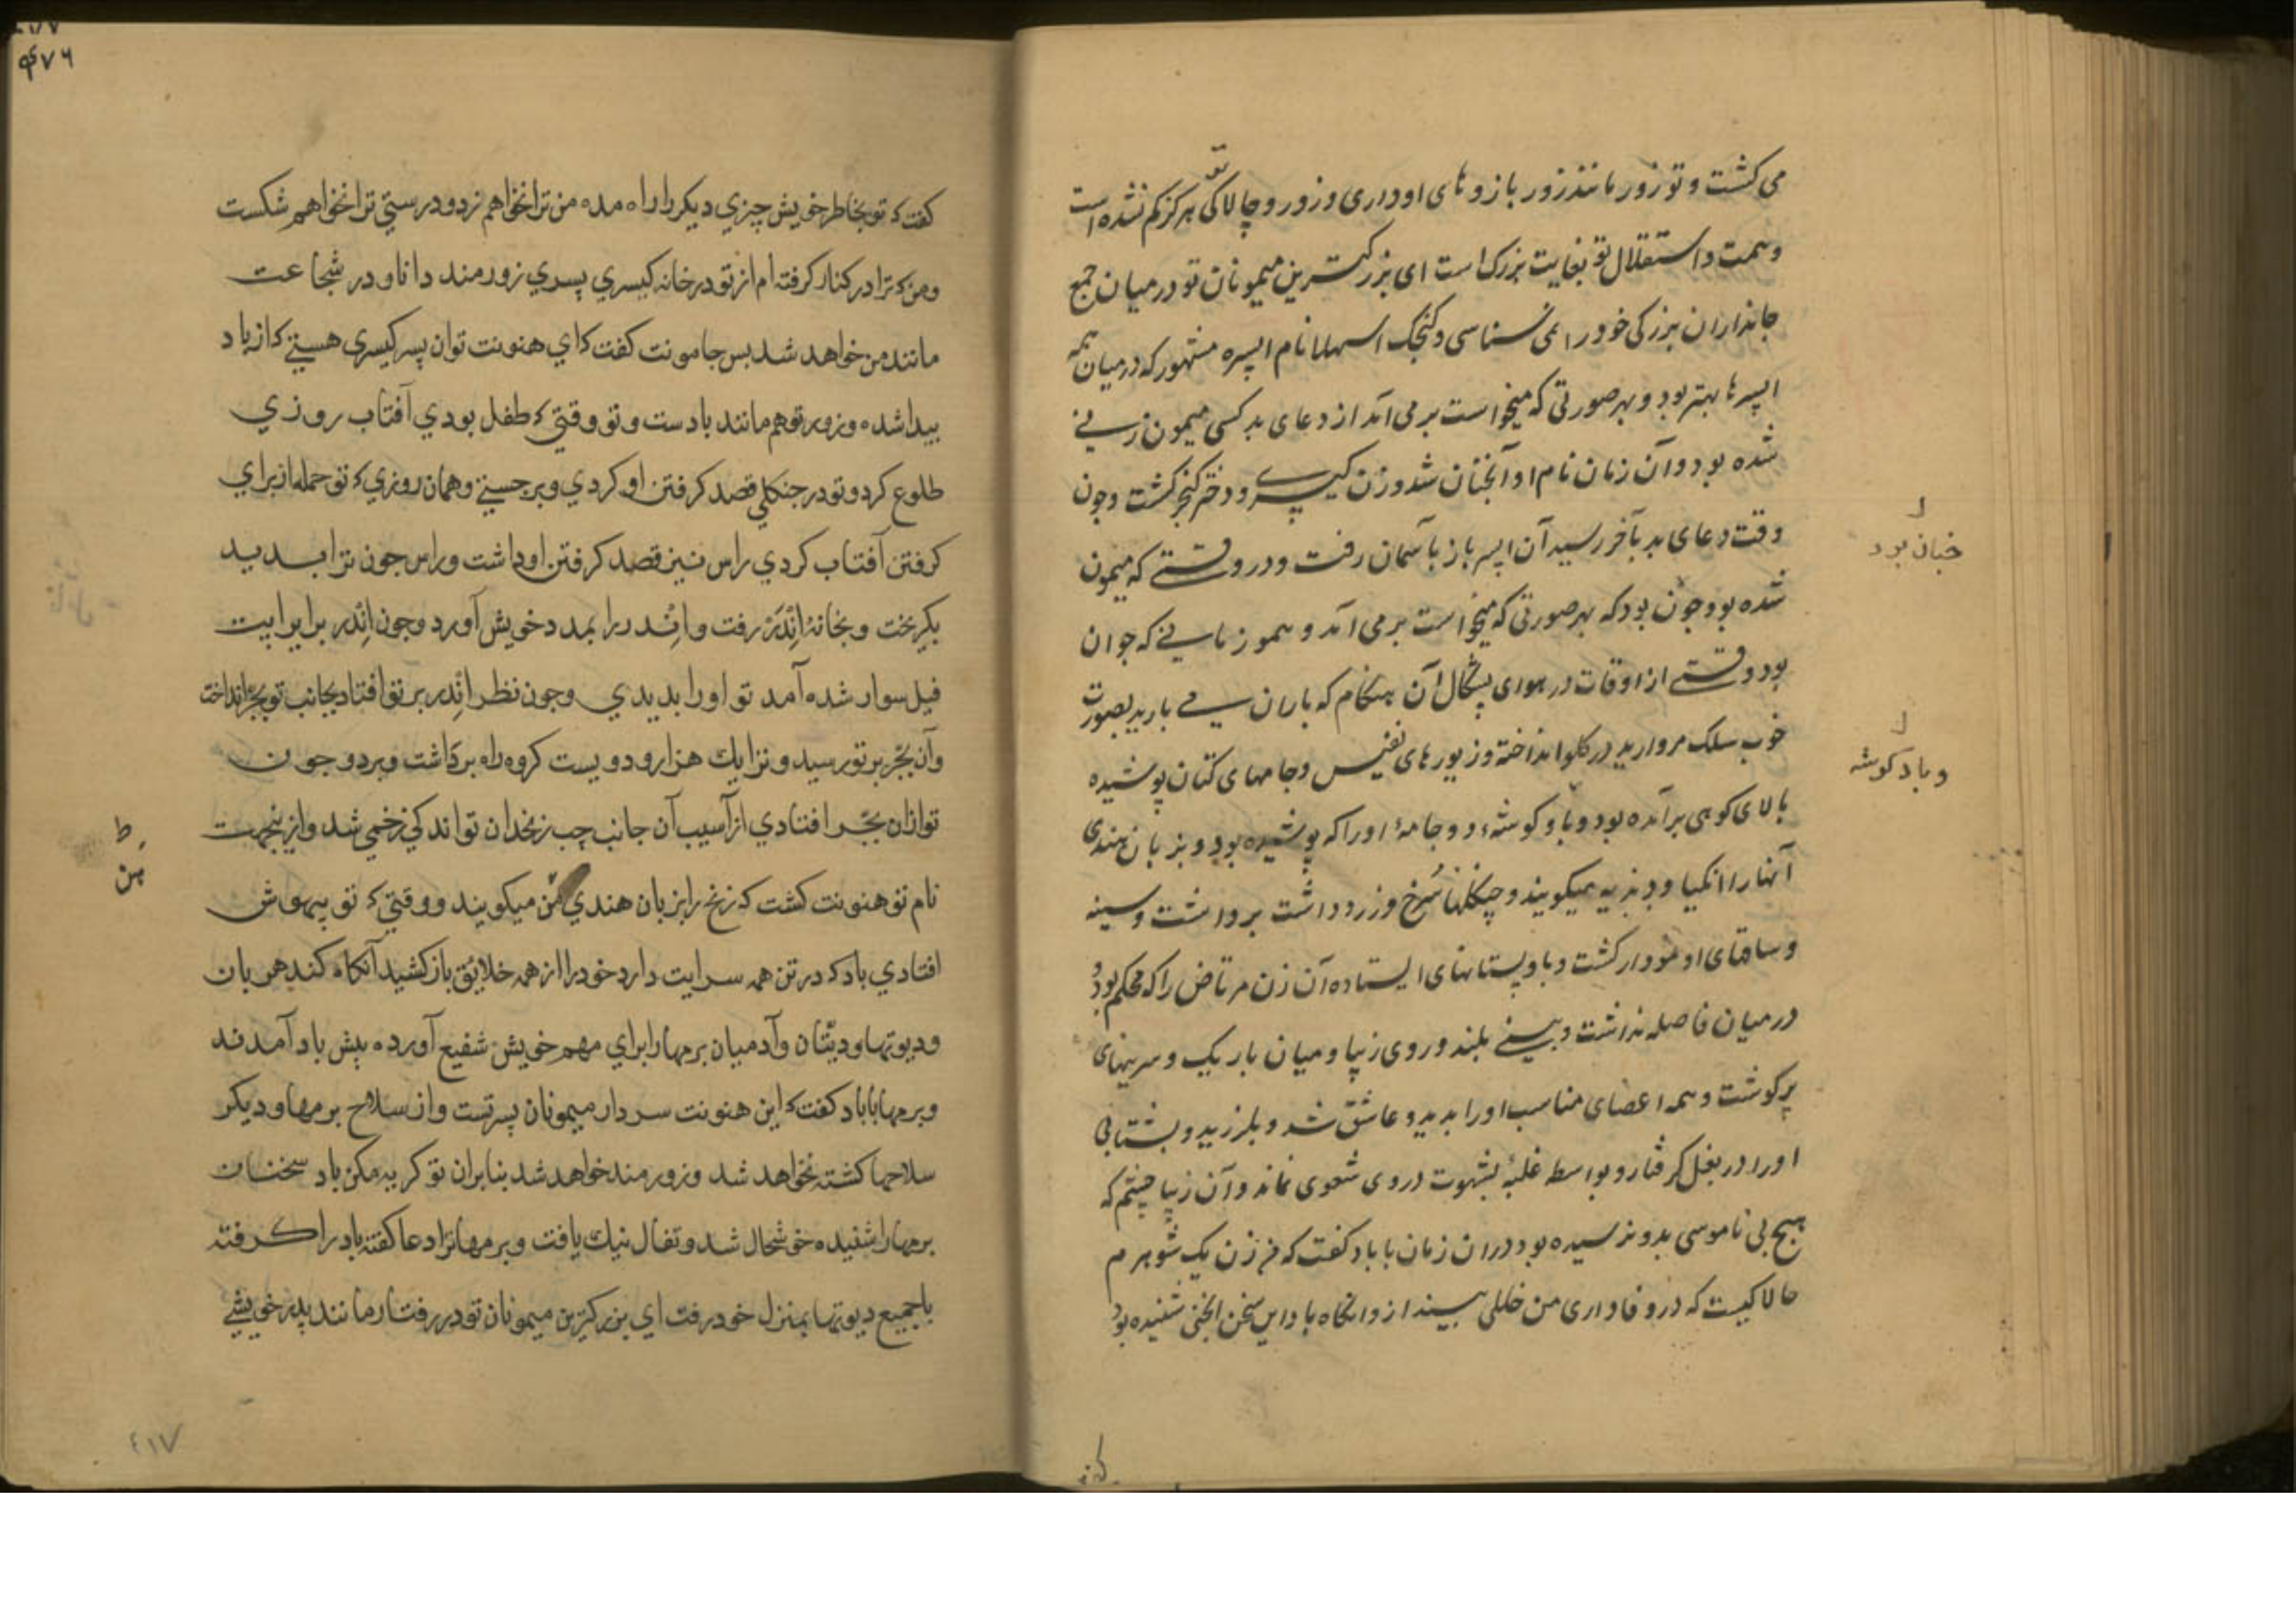 می کشت و تو زور مانند زور بازوهای او داری و زور و چالاکی تو هرگز کم نشده است
و همت و استقلال تو بغایت بزرک است ای بزرکترین میمونان تو در میان جمع
جانداران بزرکی خود را نمی شناسی و کنجک استهلا نام اپسره مشهور که در میان همه
اپسرها بهتر بود و بهر صورتی که میخواست بر می آمد از دعای بد کسی میمون زنی
شده بود و آن زمان نام او آنجنان شد و زن کیسری و دختر کنجر کشت و چون
وقت دعای بد بآخر رسید آن اپسر باز بآسمان رفت و در وقتی که میمون
شده بود چون بود که بهر صورتی که میخواست بر می آمد و هموز مانی که جوان
بود وقتی از اوقات در هوای پشکال آن هنگام که باران می بارید بصورت
خوب سلک مروارید در کلو انداخته و زیورهای نفیس و جامهای کتان پوشیده
بالای کوهی برآمده بود و باد کوشهء دو جامهٔ او را که پوشیده بود و بزبان هندی
آنها را انکیا و میکویند و سرخ و زرد داشت برداشت و سینه
و ساقهای او نمودار کشت و باد پستانهای ایستاده آن زن مرتاض را که محکم بود و
در میان فاصله نداشت و بینی بلند و روی زیبا و میان باریک و سرینهای
پرکوشت و همه اعضای مناسب او را بدید و عاشق شد و بلرزید و بشتابی
او را در بغل کرفتار و بواسطه غلبهٔ شهوت در وی شعوی نماند و آن زیبا چشم که
هیچ بی ناموسی بدو نرسیده بود دران زمان با باد کفت که من زن یک شوهرم
حالا کیست که در وفاداری من خللی بیند ازو انکاه باد این سخن انجنی شنیده بود
خیان بود
و باد کوشه
۴۷۶
کفت که تو بخاطر خویش چیزی دیکر را راه مده من ترا نخواهم زد و درستی ترا نخواهم شکست
و من که ترا در کنار کرفته ام از تو در خانه کیسری پسری زورمند دانا و در شجاعت
مانند من خواهد شد پس جامونت کفت که ای هنونت تو ان پسر کیسری هستی که از باد
پیدا شده و زور تو هم مانند بادست و تو وقتی که طفل بودی آفتاب روزی
طلوع کرد و تو در جنکلی قصد کرفتن او کردی و برجستی و همان روزی که تو حمله از برای
کرفتن آفتاب کردی راس نیز قصد کرفتن او داشت و راس چون ترا بدید
بکریخت و بخانهٔ اِنْدَرْ رفت و اِنْدر را بمدد خویش آورد و چون اِنْدر بر ایراپت
فیل سوار شده آمد تو او را بدیدی و چون نظر اِنْدر بر تو افتاد بجانب تو بجر انداخت
وآن بجر بر تو رسید و ترا یك هزار و دویست کروه راه برداشت و برد و چون
تو ازان بجر افتادی از آسیب آن جانب چپ زنخدان تو اندکی زخمی شد و ازینجهت
نام تو هنونت کشت که زنخ را بزبان هندی هن میکویند و وقتی که تو بیهوش
افتادی باد که در تن همه سرایت دارد خود را از همه خلایق باز کشید آنکاه کندهربان
و دیوتها و دیتان و آدمیان برمها را برای مهم خویش شفیع آورده پیش باد آمدند
و برمها با باد کفت که این هنونت سردار میمونان پسر تست و از سلاح برمها و دیکر
سلاحها کشته نخواهد شد و زورمند خواهد شد بنابران تو کریه مکن باد سخنان
برمها را شنیده خوشحال شد و تفال نیك یافت و برمها ترا دعا کفته باد را کرفته
با جمیع دیوتها بمنزل خود رفت ای بزرکترین میمونان تو در رفتار مانند پدر خویشی
ط
هن
٤١٧